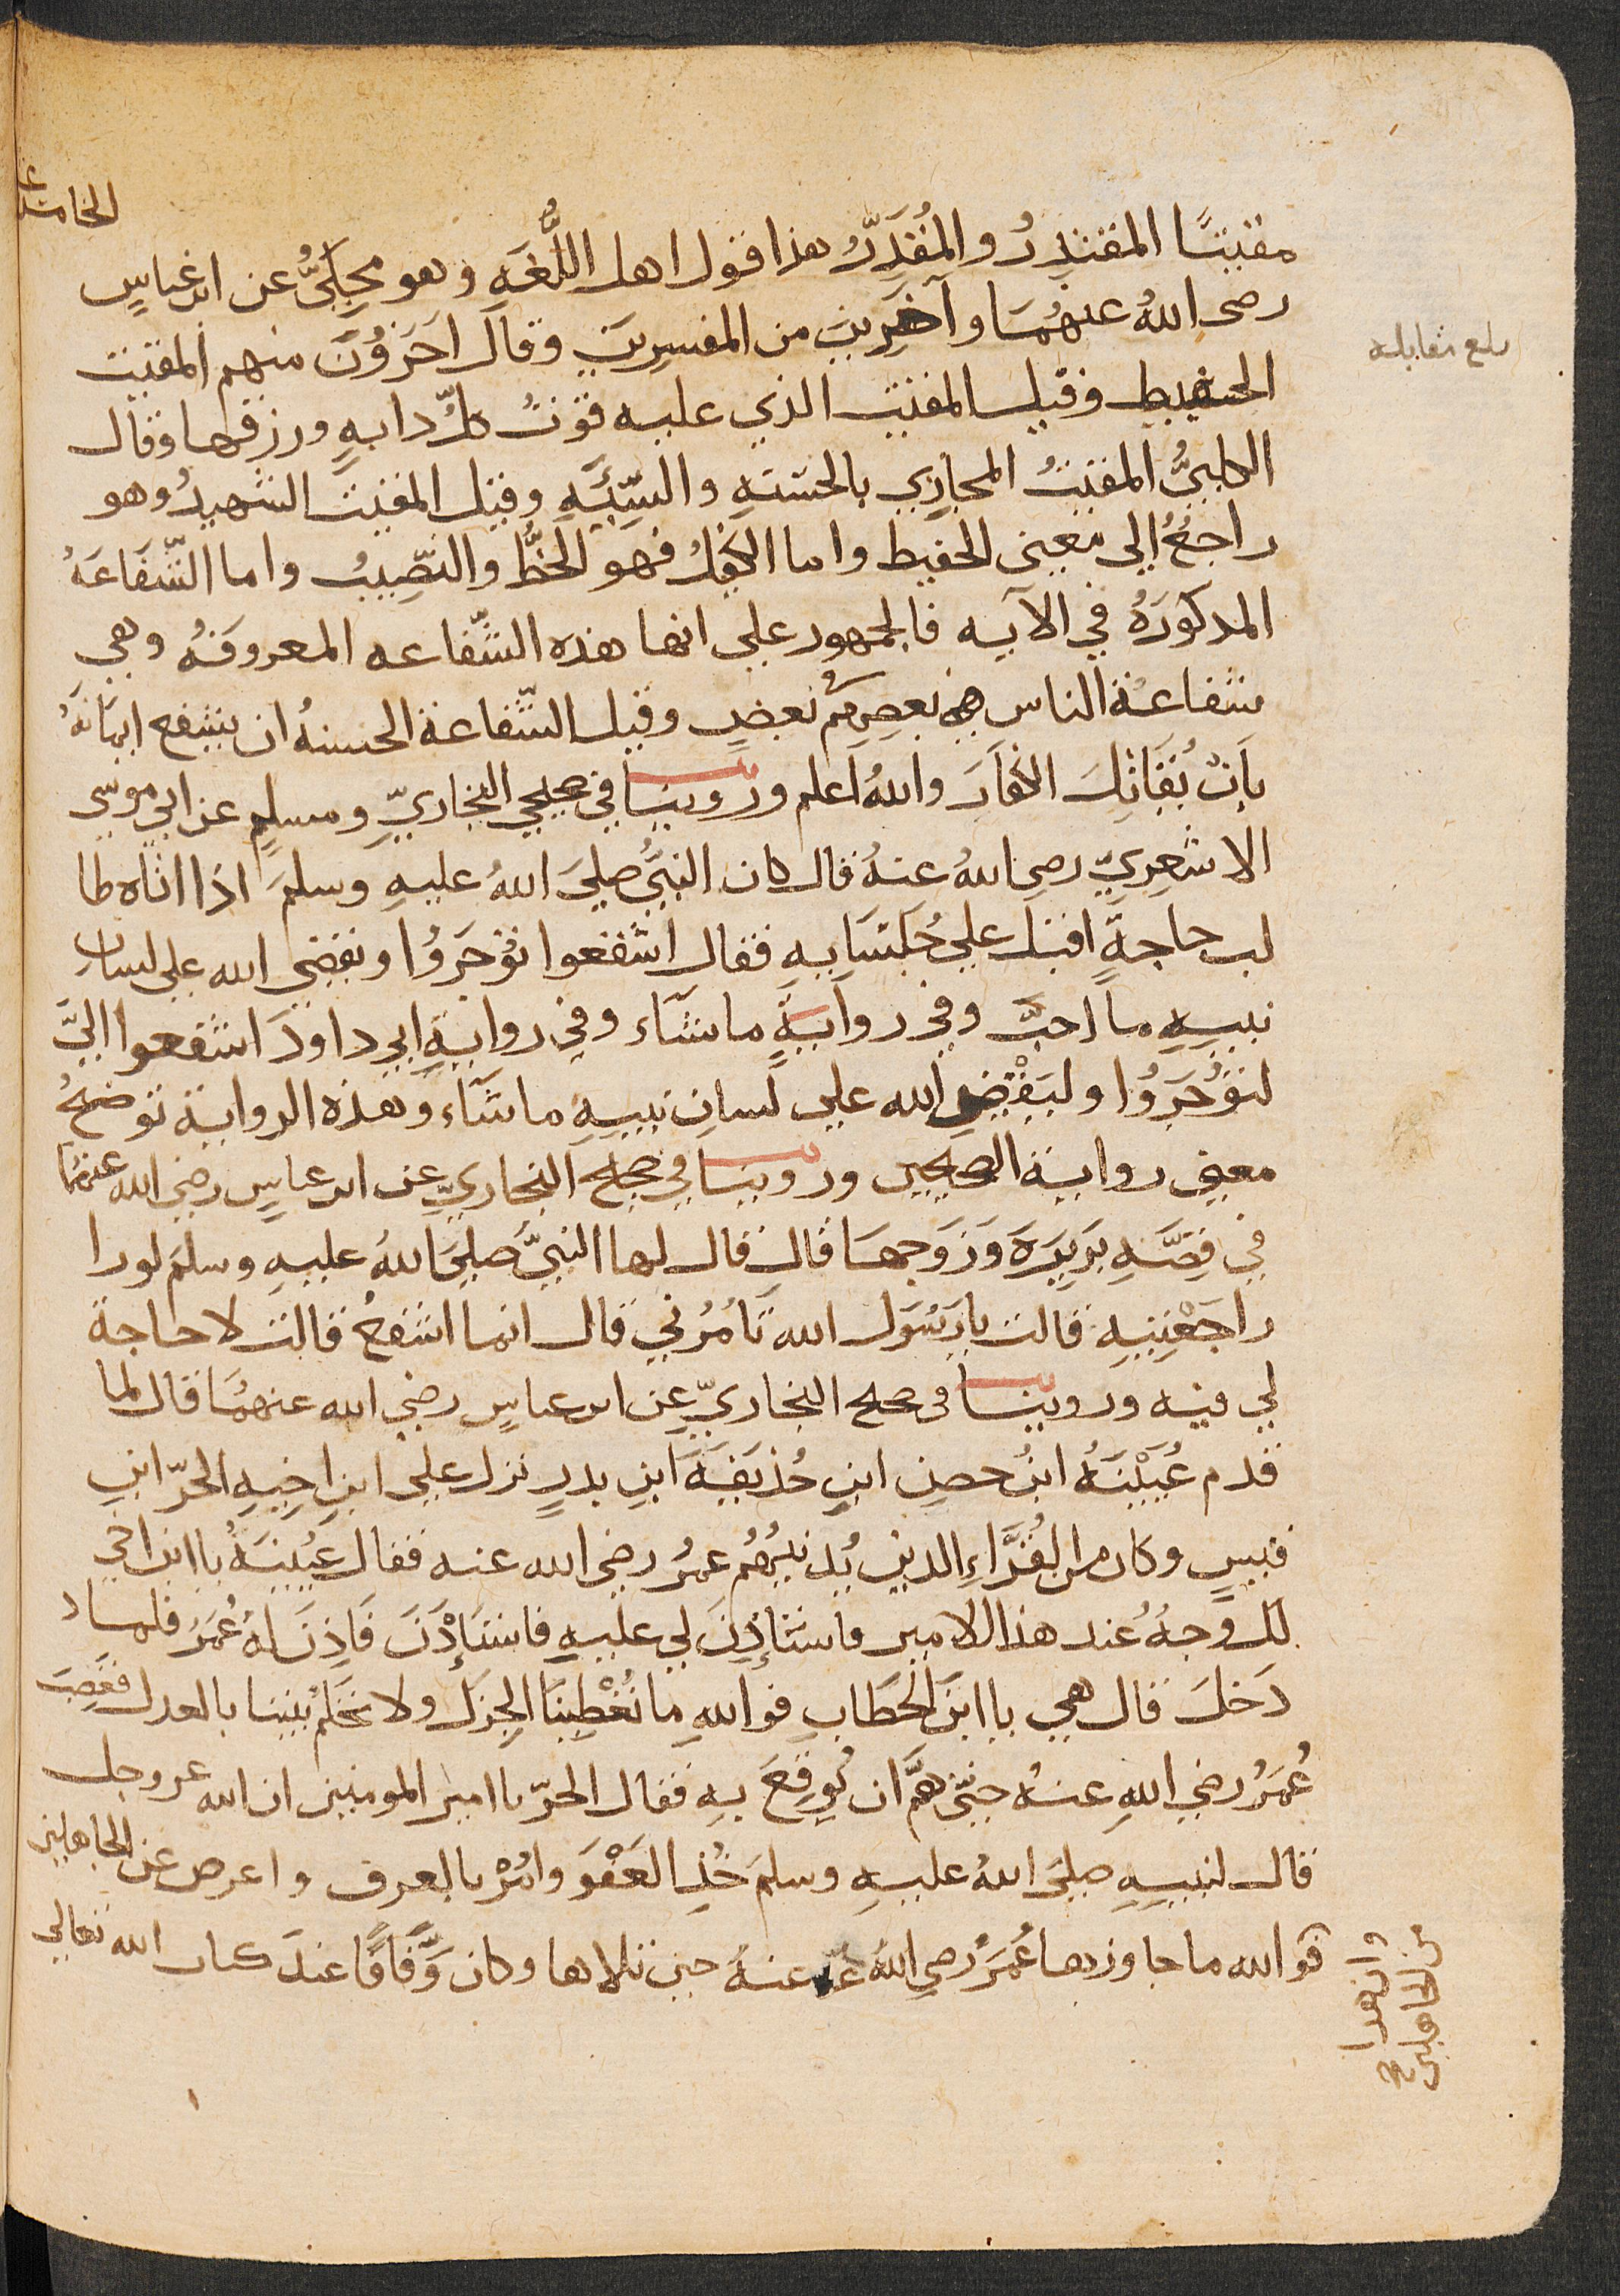 الخامسة
مقيتًا المقتدِرُ والمُقَدِّرُ هذا قول اهل اللُّغَةِ وهو مَحكىُّ عن ابن عباسٍ
رضى اللهُ عنهُمَا وآخَرِينَ من المفسرِينَ وقال اخَرُوْنَ منهم المقيت
الحفيظ وقيل المقيت الذي عليه قوتُ كلِّ دابةٍ ورزقها وقال
الكلبىُّ المقيتُ المجازِي بالحسنةِ والسَّيِّئَةِ وقيل المقيت الشهيدُ وهو
راجعٌ إلى معنى الحفيظ واما الكِفلُ فهو الحظُّ والنَّصِيبُ واما الشَّفَاعَةُ
المذكورَةُ في الآيه فالجمهور على انها هذه الشَّفاعه المعروفَهُ وهي
شفاعة الناس بعضِهم في بعضٍ وقيل الشَّفاعة الحسنهُ ان يشفع ايمانَهُ
بِأَنْ يُقَاتِلَ الكفارَ واللهُ اعلم وروينا في صحيحي البخاريِّ ومسلمٍ عن ابي موسى
الاشعرِيِّ رضي اللهُ عنهُ قال كان النبىُّ صلىَ اللهُ عليهِ وسلمَ اذا اتاه طا
لب حاجةٍ اقبل على جُلَسَايِهِ فقال اشفعوا تؤجَرُوا ويقضي الله على لسانِ
نبييهِ ما احبَّ وفي روايةٍ ماشآء وفي روايةِ ابي داودَ اشفعوا اليَّ
لتؤجَرُوا وليَقْضِ الله على لسانِ نبييهِ ماشآء وهذه الرواية توضحُ
معنى رواية الصحيحين وروينا في صحيح البخاريِّ عن ابن عباسٍ رضي الله عنهُمَا
في قِصَّهِ بَرِيرَةَ وَزَوجِهَا قال قال لها النبىُّ صلىَ اللهُ عليهِ وسلمَ لورا
راجَعْتِيهِ قالت يارَسُولَ الله تَأمُرُني قال انما اشفعُ قالت لا حاجة
لي فيه وروينا في صحيح البخاريِّ عن ابن عباسٍ رضي الله عنهُمَا قال لما
قدم عُيَيْنَهُ ابنُ حصنِ ابنِ حُذَيفَةَ ابنِ بدرٍ نزل على ابنِ اخِيهِ الحرّ ابنِ
قيسٍ وكان من القُرَّاءِ الذين يُدنِيْهُم عمرُ رضى الله عنه فقال عُيَينَهُ يا ابن اخي
لك وجهٌ عند هذا الامير فاستأذِن لي عليهِ فاستَاْذَنَ فَاذِنَ لهُ عُمَرُ فلما
دَخلَ قال هي يا ابنَ الخطابِ فواللهِ ما تُعْطِينَا الجزلَ ولا تحكم بيننا بالعدل فغَضِبَ
عُمَرُ رضي اللهِ عنهُ حتى هَمَّ ان يُوقِعَ بهِ فقال الحرّ يا امير المومنين ان الله عز وجل
قال لنبييهِ صلىَ اللهُ عليهِ وسلمَ خُذِ العَفْوَ وامُرْ بالعرف واعرض عن الجاهلين
فوالله ما جاوزها عُمَرُ رضي اللهُ عنهُ حين تلاها وكان وَقَّافًا عندَ كتاب الله تعالى
بلغ مقابله
وان هذا
من الجاهلين صح